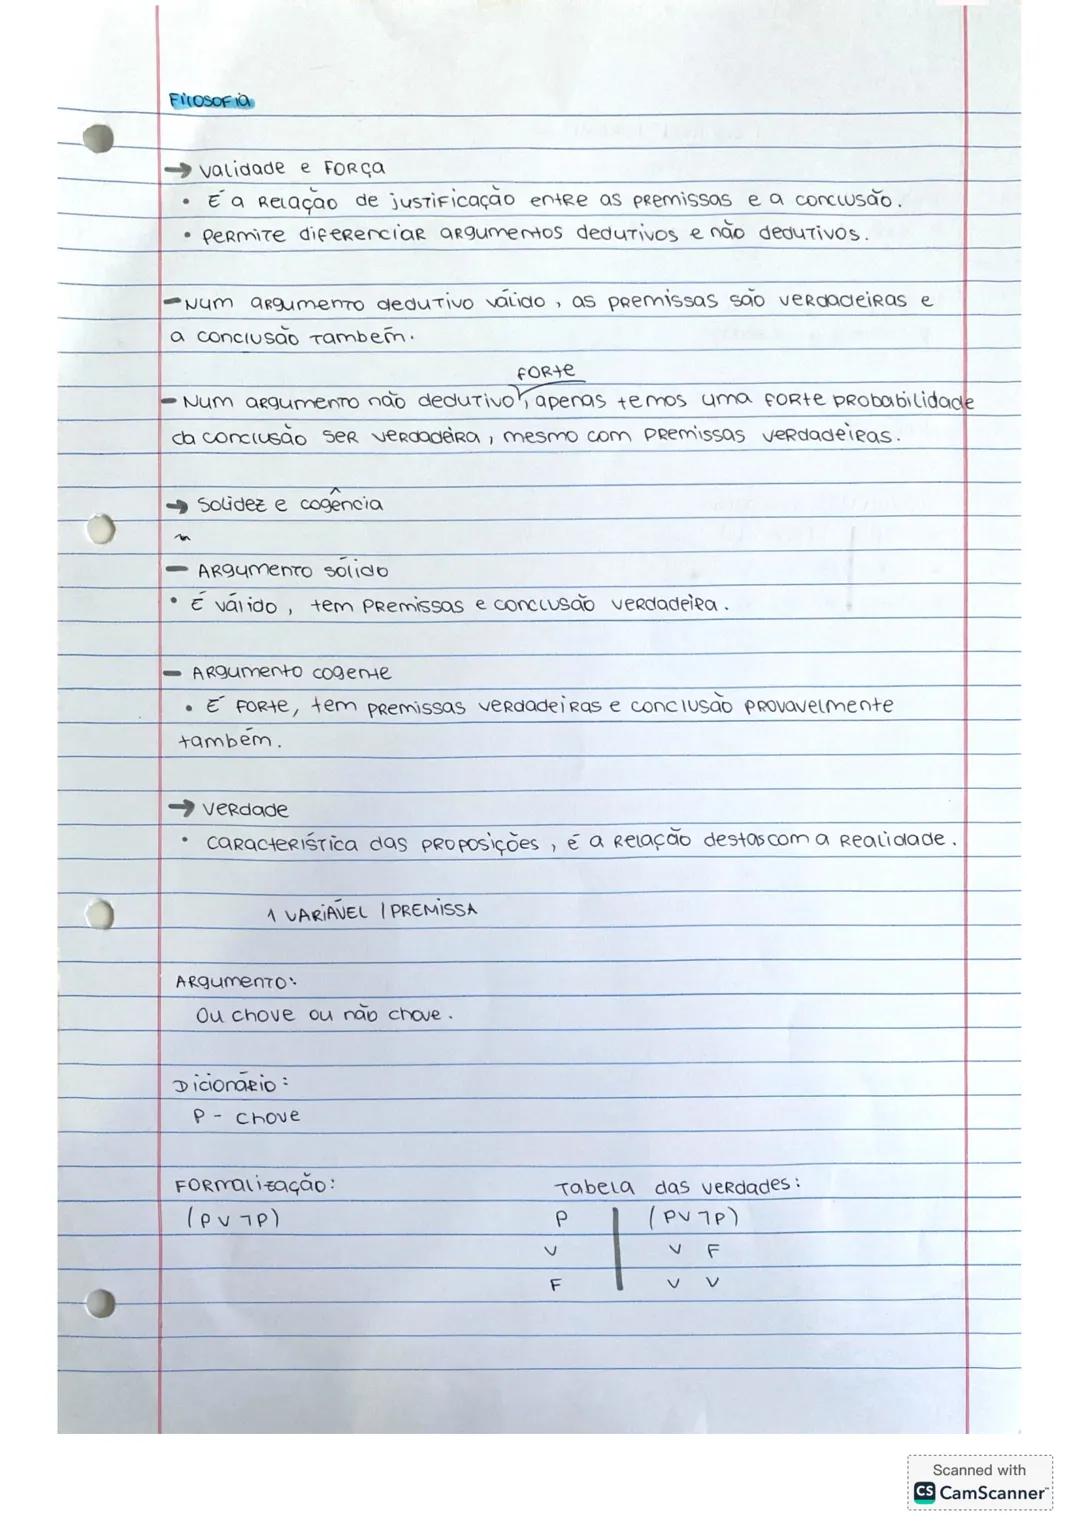 Filosofia
→ Validade e Força
• É a Relação de justificação entre as premissas e a conclusão.
• Permite diferenciar argumentos dedutivos e não dedutivos.
- Num argumento dedutivo válido, as premissas são verdadeiras e
a conclusão também.
forte
- Num argumento não dedutivo, apenas temos uma forte probabilidade
da conclusão ser verdadeira, mesmo com premissas verdadeiras.
→ Solidez e cogência
- Argumento sólido
• É válido, tem premissas e conclusão verdadeira.
- Argumento cogente
• É forte, tem premissas verdadeiras e conclusão provavelmente
também.
→ Verdade
• Característica das proposições, é a relação destas com a realidade.
1 VARIÁVEL / PREMISSA
Argumento:
Ou chove ou não chove.
Dicionário:
P - chove
Formalização: Tabela das verdades:
(P ∨ ¬P) P | (P ∨ ¬P)
V V F
F V V
Scanned with
CS CamScanner